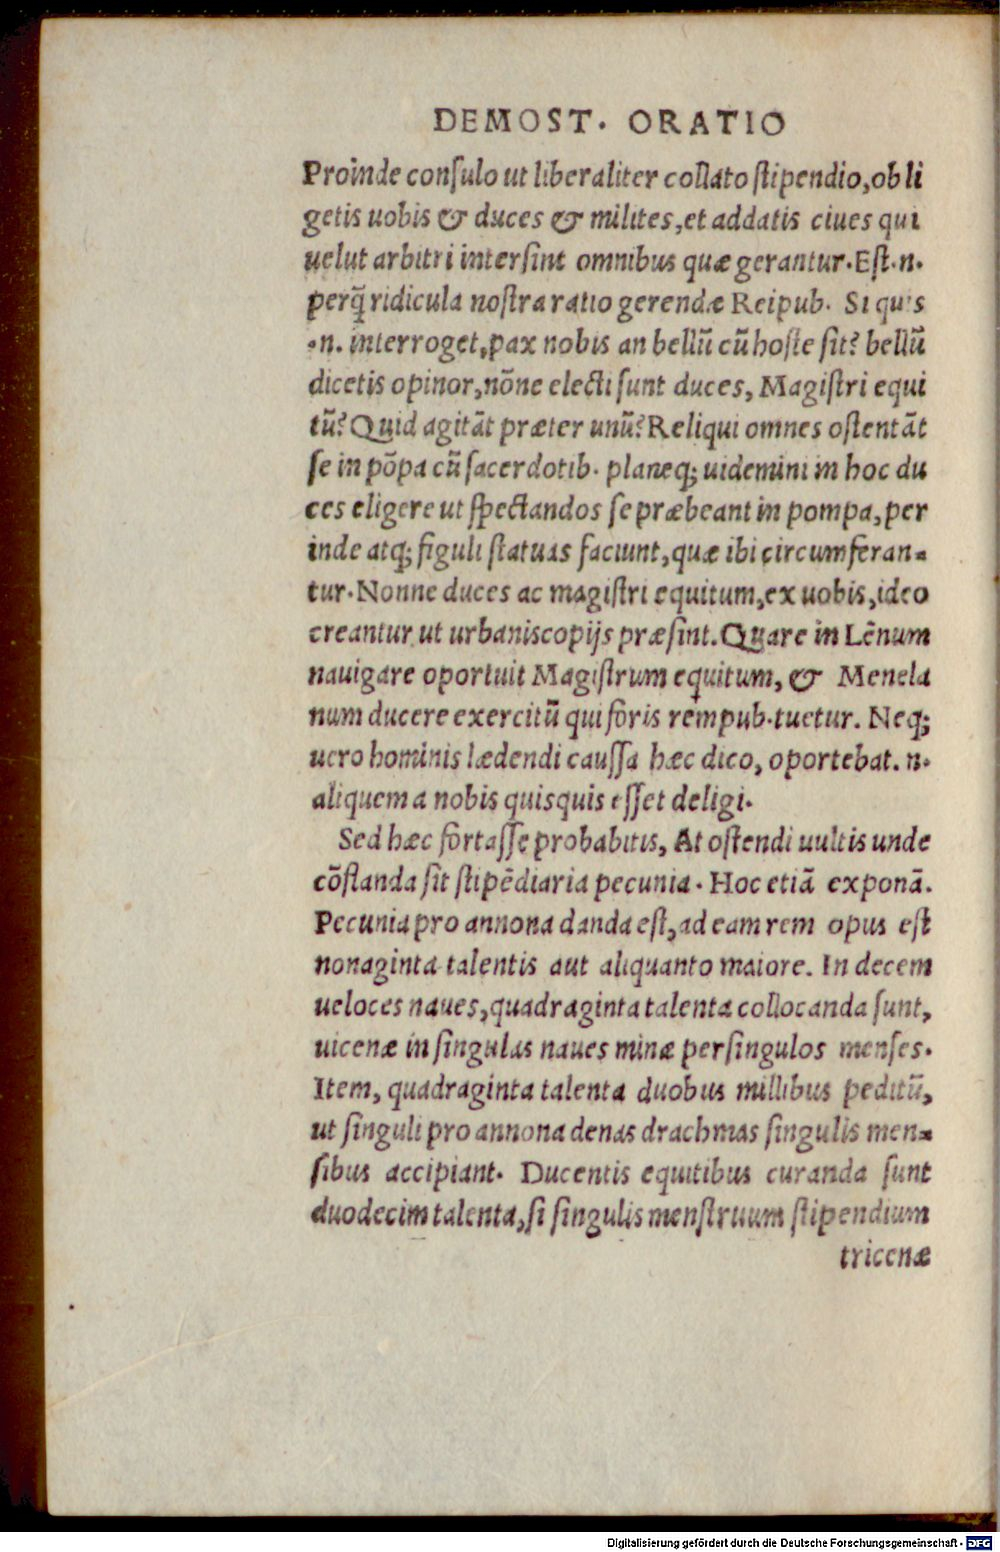 DEMOST. ORATIO
Proinde consulo ut liberaliter collato stipendio, obli
getis uobis & duces & milites, et addatis ciues qui
uelut arbitri intersint omnibus quæ gerantur. Est .n.
perq̃ ridicula nostra ratio gerendæ Reipub. Si quis
.n. interroget, pax nobis an bellũ cũ hoste sit? bellũ
dicetis opinor, nõne electi sunt duces, Magistri equi
tũ? Quid agitãt præter unũ? Reliqui omnes ostentãt
se in põpa cũ sacerdotib. planeq; uidemini in hoc du
ces eligere ut spectandos se præbeant in pompa, per
inde atq; figuli statuas faciunt, quæ ibi circumferan-
tur. Nonne duces ac magistri equitum, ex uobis, ideo
creantur ut urbanis copijs præsint. Quare in Lẽnum
nauigare oportuit Magistrum equitum, & Menela
num ducere exercitũ qui foris rempub. tuetur. Neq;
uero hominis lædendi caussa hæc dico, oportebat .n.
aliquem a nobis quisquis esset deligi.
Sed hæc fortasse probabitis, At ostendi uultis unde
cõstanda sit stipẽdiaria pecunia. Hoc etiã exponã.
Pecunia pro annona danda est, ad eam rem opus est
nonaginta talentis aut aliquanto maiore. In decem
ueloces naues, quadraginta talenta collocanda sunt,
uicenæ in singulas naues minæ per singulos menses.
Item, quadraginta talenta duobus millibus peditũ,
ut singuli pro annona denas drachmas singulis men-
sibus accipiant. Ducentis equitibus curanda sunt
duodecim talenta, si singulis menstruum stipendium
tricenæ
Digitalisierung gefördert durch die Deutsche Forschungsgemeinschaft - DFG